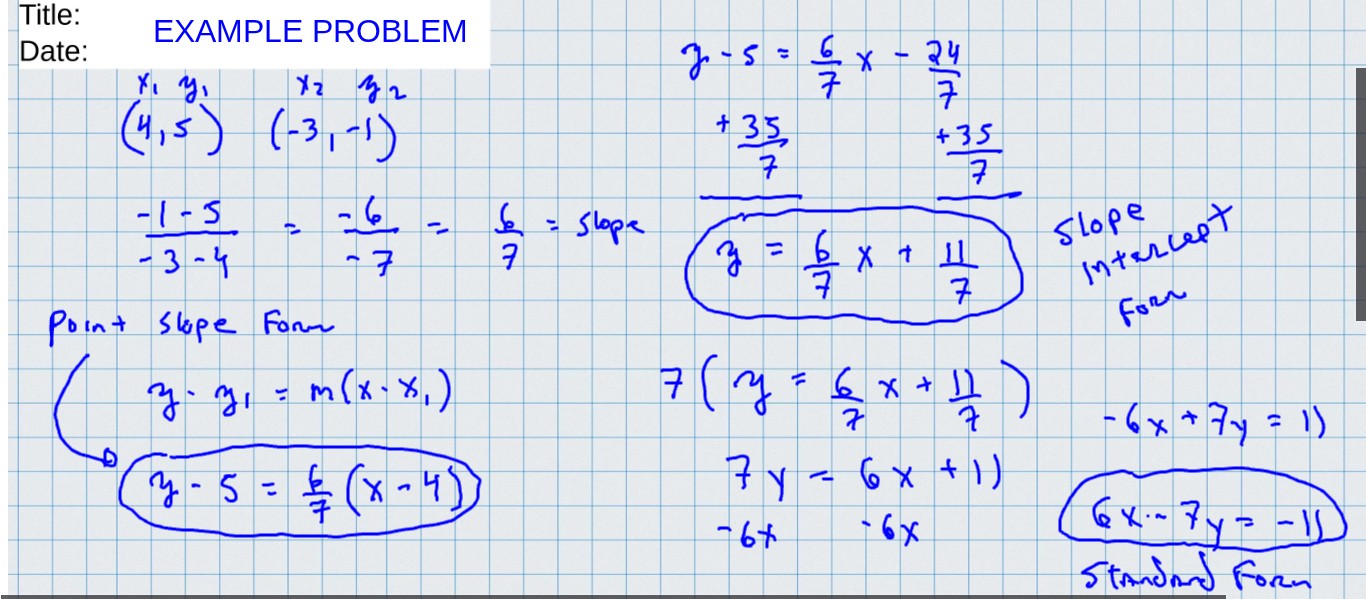 Title:
EXAMPLE PROBLEM
Date:
x₁ y₁ x₂ y₂
(4,5) (-3,-1)
-1-5/-3-4 = -6/-7 = 6/7 = slope
Point Slope Form
y - y₁ = m(x - x₁)
y - 5 = 6/7 (x - 4)
y - 5 = 6/7 x - 24/7
+35/7 +35/7
y = 6/7 x + 11/7
Slope
Intercept
Form
7(y = 6/7 x + 11/7)
7y = 6x + 11
-6x -6x
-6x + 7y = 11
6x - 7y = -11
Standard Form